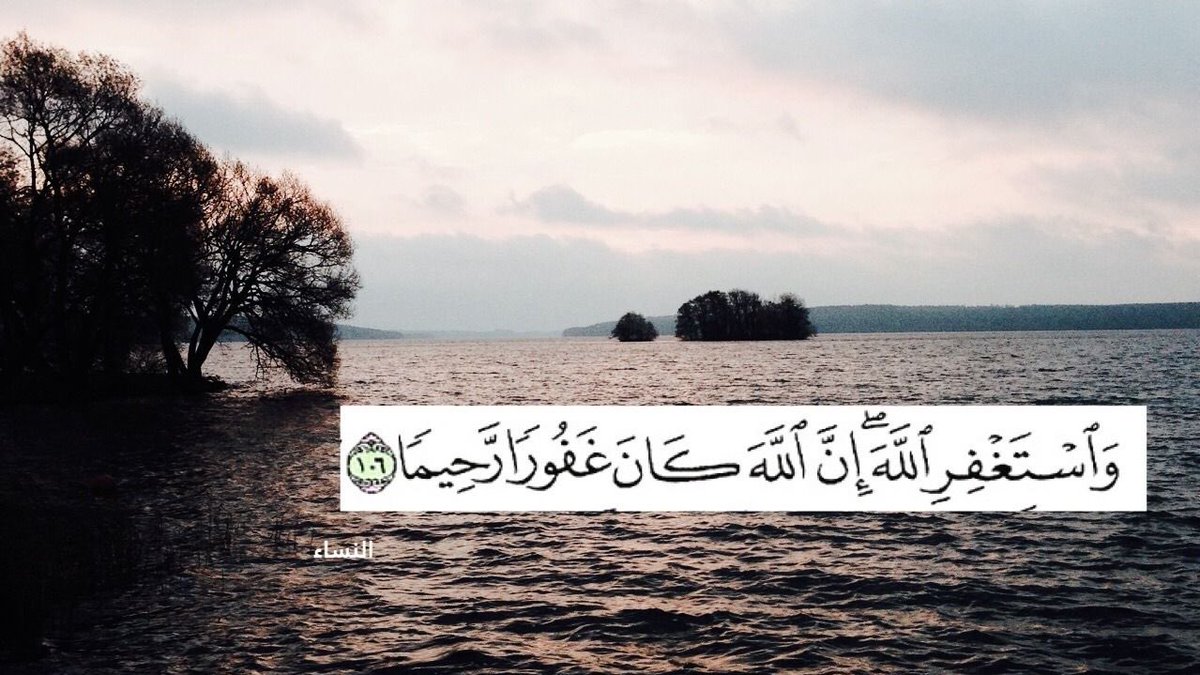 وَٱسْتَغْفِرِ ٱللَّهَ ۖ إِنَّ ٱللَّهَ كَانَ غَفُورًا رَّحِيمًا ١٠٦
النساء